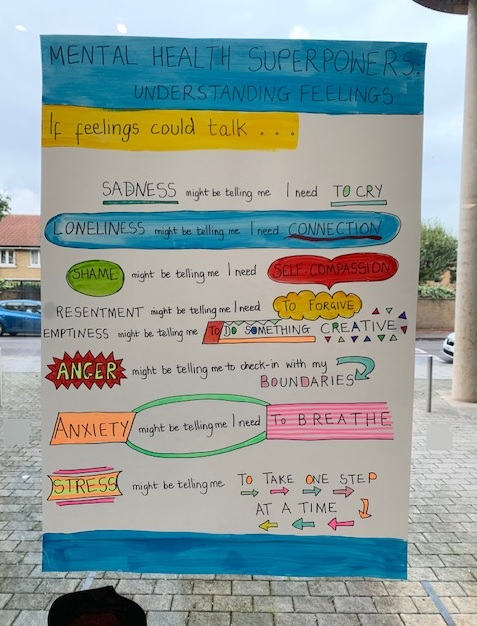 MENTAL HEALTH SUPERPOWERS:
UNDERSTANDING FEELINGS
If feelings could talk . . .
SADNESS might be telling me I need TO CRY
LONELINESS might be telling me I need CONNECTION
SHAME might be telling me I need SELF-COMPASSION
RESENTMENT might be telling me I need To FORGIVE
EMPTINESS might be telling me TO DO SOMETHING CREATIVE
ANGER might be telling me to check-in with my
BOUNDARIES
ANXIETY might be telling me I need To BREATHE
STRESS might be telling me TO TAKE ONE STEP
AT A TIME